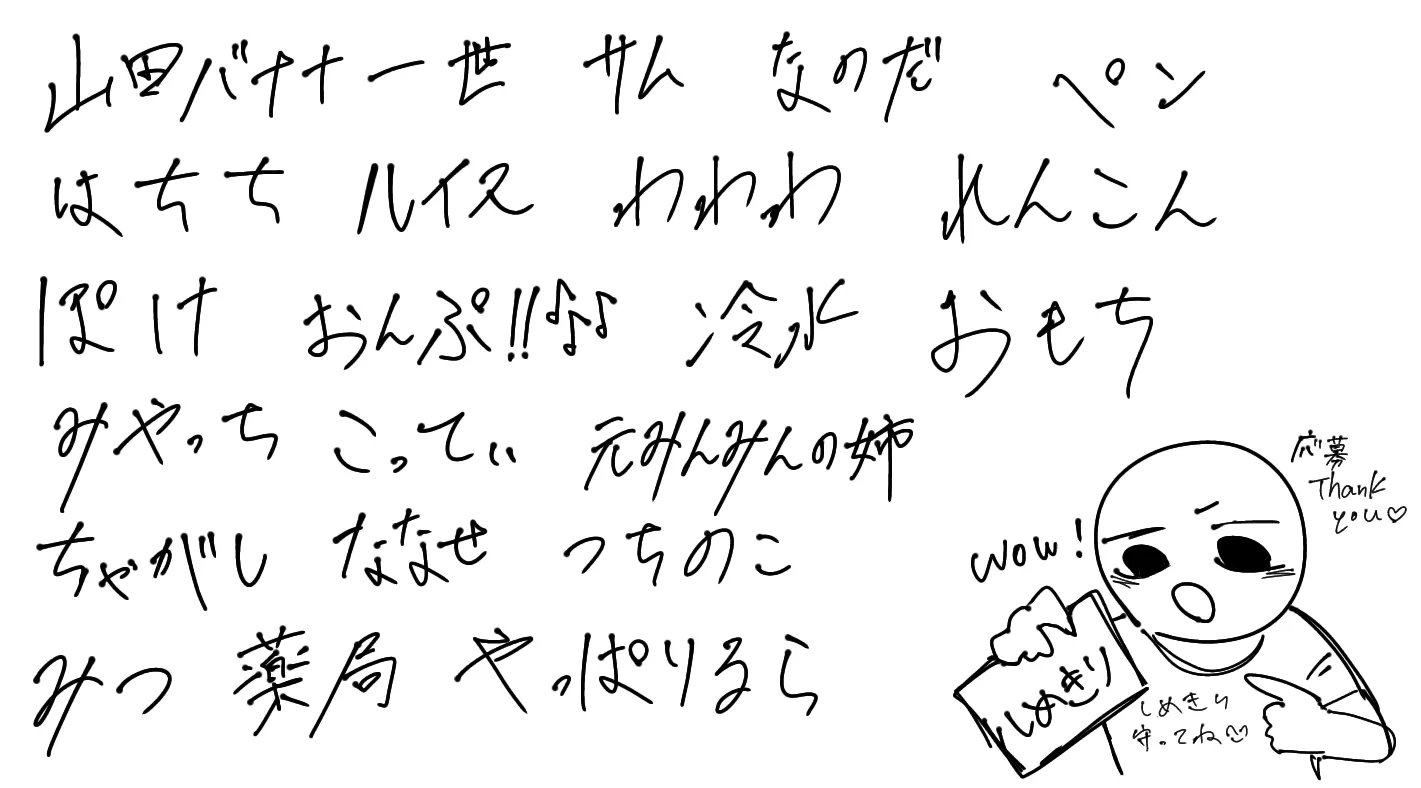 山田バナナ一世 サム なのだ ペン
はちち ルイス わわわ れんこん
ぽけ おんぷ!!♪♪♪ 冷水 おもち
みやっち こってぃ 元みんみんの姉
ちゃがし ななせ つちのこ
みつ 薬局 やっぱりるら
応募
Thank
you♡
wow!
しめきり
しめきり
守ってね♡